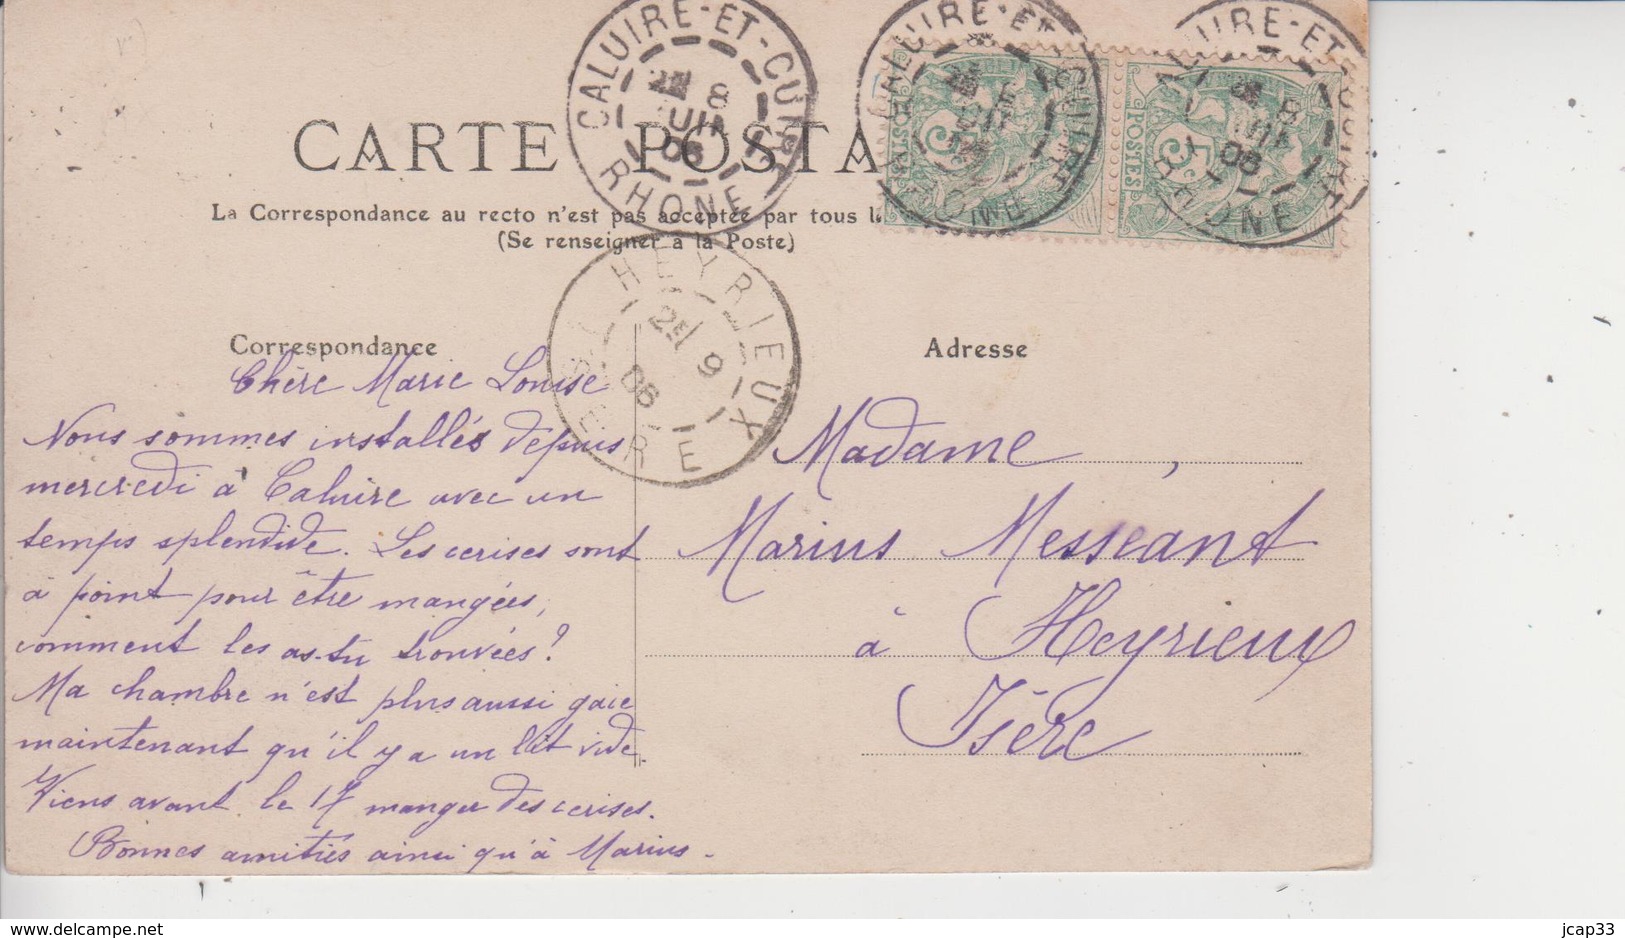 CALUIRE-ET-CUIRE
8
JUIN
06
RHONE
CALUIRE-ET-CUIRE
RHONE
CALUIRE-ET-CUIRE
8
JUIN
06
RHONE
POSTES
5c
POSTES
5c
CARTE POSTA
La Correspondance au recto n'est pas acceptée par tous l
(Se renseigner à la Poste)
HEYRIEUX
9
06
ISERE
Correspondance
Chère Marie Louise
Nous sommes installés depuis
mercredi à Caluire avec un
temps splendide. Les cerises sont
à point pour être mangées,
comment les as-tu trouvées?
Ma chambre n'est plus aussi gaie
maintenant qu'il y a un lit vide.
Viens avant le 17 manger des cerises.
Bonnes amitiés ainsi qu'à Marius.
Adresse
Madame,
Marius Messeant
à Heyrieux
Isère
www.delcampe.net
jcap33